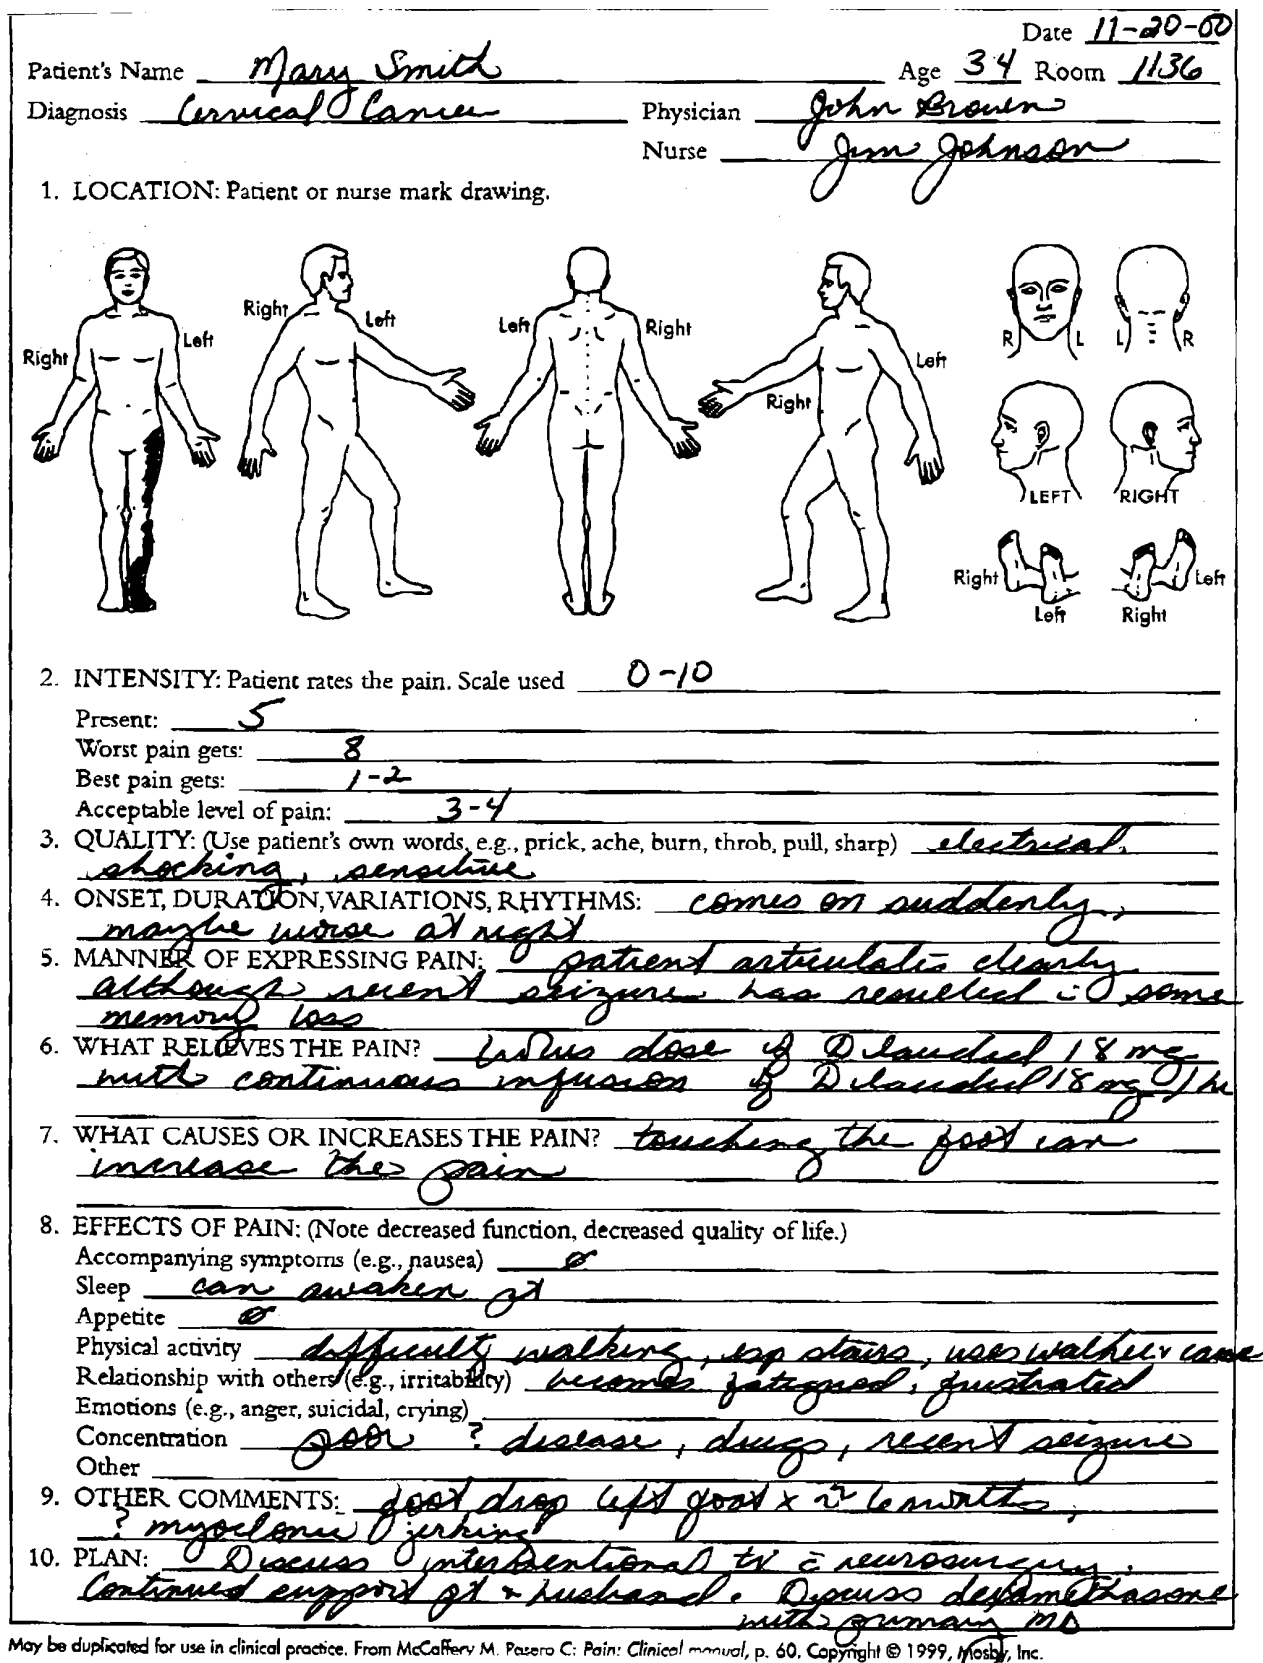 Date 11-20-00
Patient's Name Mary Smith Age 34 Room 1136
Diagnosis Cervical Cancer Physician John Brown
Nurse Jim Johnson
1. LOCATION: Patient or nurse mark drawing.
Right Left Right Left Left Right Right Left R L L R
LEFT RIGHT
Right Left Right Left
2. INTENSITY: Patient rates the pain. Scale used 0-10
Present: 5
Worst pain gets: 8
Best pain gets: 1-2
Acceptable level of pain: 3-4
3. QUALITY: (Use patient's own words, e.g., prick, ache, burn, throb, pull, sharp) electrical,
shocking, sensitive
4. ONSET, DURATION, VARIATIONS, RHYTHMS: comes on suddenly,
maybe worse at night
5. MANNER OF EXPRESSING PAIN: patient articulates clearly
although recent seizure has resulted c̄ some
memory loss
6. WHAT RELIEVES THE PAIN? bolus dose of Dilaudid 18 mg
with continuous infusion of Dilaudid 18 mg/hr
7. WHAT CAUSES OR INCREASES THE PAIN? touching the foot can
increase the pain
8. EFFECTS OF PAIN: (Note decreased function, decreased quality of life.)
Accompanying symptoms (e.g., nausea) ø
Sleep can awaken pt
Appetite ø
Physical activity difficulty walking, esp stairs, uses walker + cane
Relationship with others (e.g., irritability) becomes fatigued, frustrated
Emotions (e.g., anger, suicidal, crying)
Concentration poor ? disease, drugs, recent seizure
Other
9. OTHER COMMENTS: foot drop left foot x ~ 6 months,
? myoclonic jerking
10. PLAN: Discuss interventional tx c̄ neurosurgery.
Continued support pt + husband. Discuss dexamethasone
with primary MD
May be duplicated for use in clinical practice. From McCaffery M. Pasero C: Pain: Clinical manual, p. 60, Copyright © 1999, Mosby, Inc.